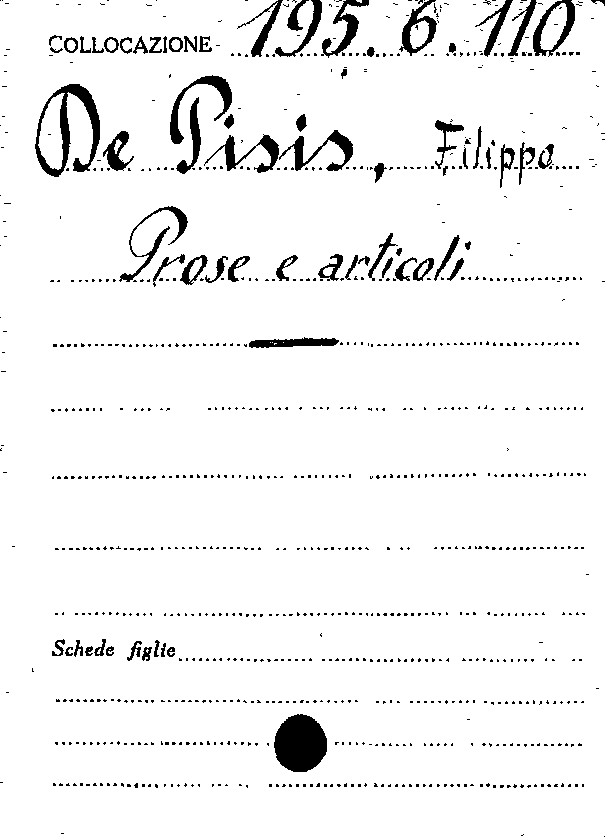 COLLOCAZIONE 195.6.110
De Pisis, Filippo
Prose e articoli
Schede figlie